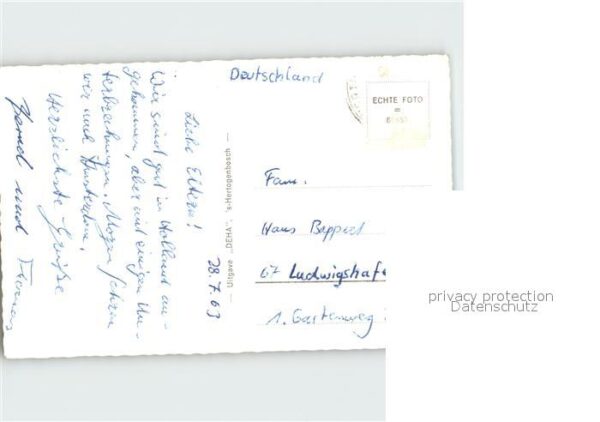 28.7.63
Liebe Eltern!
Wir sind gut in Holland an-
gekommen, aber mit einigen Un-
terbrechungen. Morgen fahren
wir nach Amsterdam,
Herzlichste Grüße
Bernd und
— Uitgave „DEHA", 's-Hertogenbosch —
Deutschland
ECHTE FOTO
Fam.
Hans Bippert
67 Ludwigshafe
1. Gartenweg
privacy protection
Datenschutz